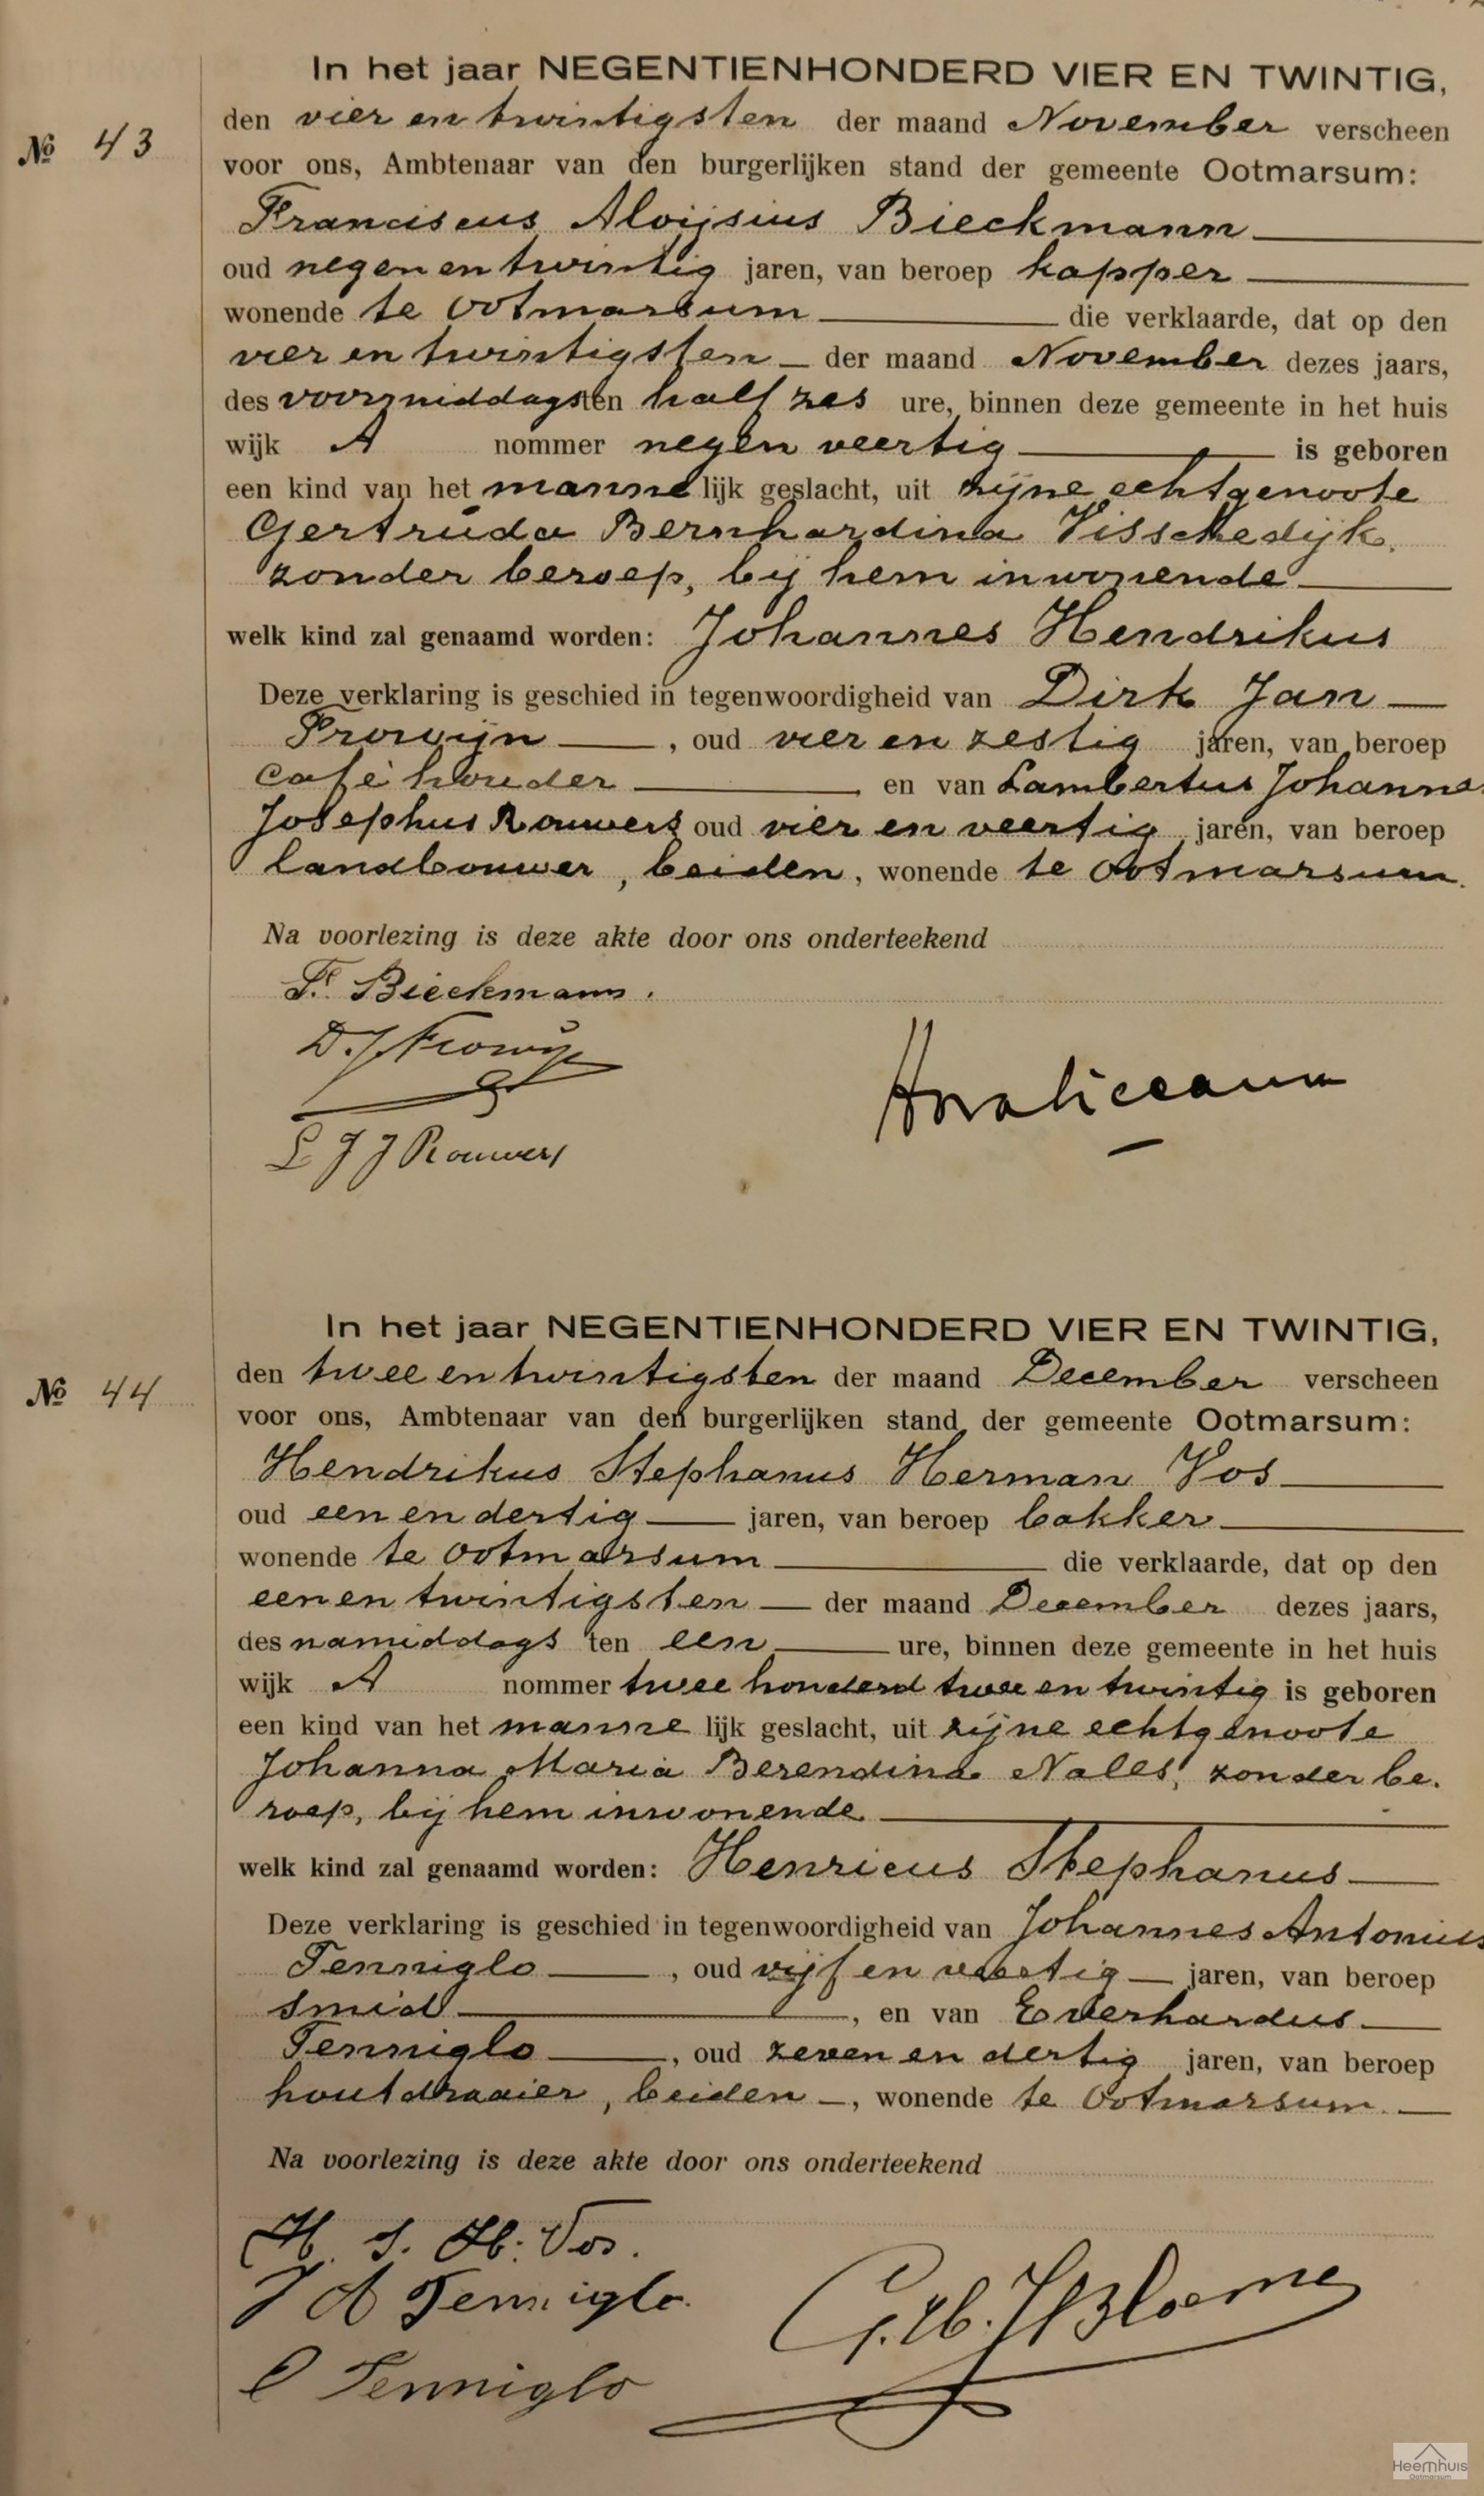 In het jaar NEGENTIENHONDERD VIER EN TWINTIG,
den vier en twintigsten der maand November verscheen
№ 43
voor ons, Ambtenaar van den burgerlijken stand der gemeente Ootmarsum:
Franciscus Aloijsius Bieckmann
oud negen en twintig jaren, van beroep kapper
wonende te Ootmarsum die verklaarde, dat op den
vier en twintigsten der maand November dezes jaars,
des voormiddags ten half zes ure, binnen deze gemeente in het huis
wijk A nommer negen veertig is geboren
een kind van het mannelijk geslacht, uit zijne echtgenoote
Gertruda Bernhardina Visschedijk,
zonder beroep, bij hem inwonende
welk kind zal genaamd worden: Johannes Hendrikus
Deze verklaring is geschied in tegenwoordigheid van Dirk Jan
Frowijn, oud vier en zestig jaren, van beroep
caféhouder, en van Lambertus Johannes
Josephus Rouwers oud vier en veertig jaren, van beroep
landbouwer, beiden, wonende te Ootmarsum.
Na voorlezing is deze akte door ons onderteekend
F. Bieckmann.
D. J. Frowijn
L J J Rouwers
In het jaar NEGENTIENHONDERD VIER EN TWINTIG,
den twee en twintigsten der maand December verscheen
№ 44
voor ons, Ambtenaar van den burgerlijken stand der gemeente Ootmarsum:
Hendrikus Stephanus Herman Vos
oud een en dertig jaren, van beroep bakker
wonende te Ootmarsum die verklaarde, dat op den
een en twintigsten der maand December dezes jaars,
des namiddags ten een ure, binnen deze gemeente in het huis
wijk A nommer twee honderd twee en twintig is geboren
een kind van het mannelijk geslacht, uit zijne echtgenoote
Johanna Maria Berendina Nales, zonder be-
roep, bij hem inwonende
welk kind zal genaamd worden: Henricus Stephanus
Deze verklaring is geschied in tegenwoordigheid van Johannes Antonius
Tenniglo, oud vijf en veertig jaren, van beroep
smid, en van Everhardus
Tenniglo, oud zeven en dertig jaren, van beroep
houtdraaier, beiden, wonende te Ootmarsum.
Na voorlezing is deze akte door ons onderteekend
H. S. H. Vos.
J A Tenniglo.
E Tenniglo
Heemhuis
Ootmarsum